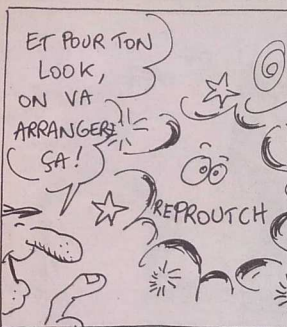 ET POUR TON
LOOK,
ON VA
ARRANGER
ÇA !
REPROUTCH